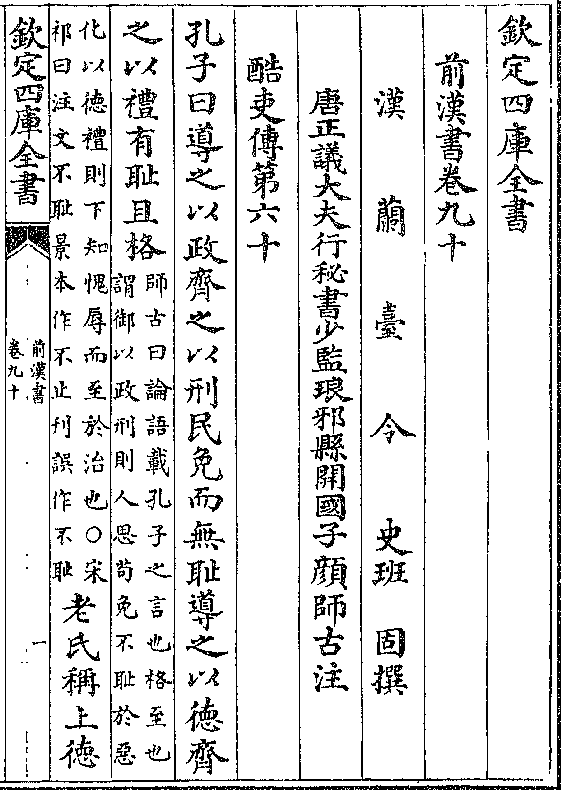 欽定四庫全書
前漢書卷九十
漢蘭臺令史班固撰
唐正議大夫行秘書少監琅邪縣開國子顔師古注
酷吏傳第六十
孔子曰導之以政齊之以刑民免而無耻導之以徳齊
之以禮有耻且格
師古曰論語載孔子之言也格至也
謂御以政刑則人思苟免不耻於惡
化以徳禮則下知愧辱而至於治也○宋
祁曰注文不耻景本作不止刋誤作不耻
老氏稱上徳
欽定四庫全書
前漢書
卷九十
一